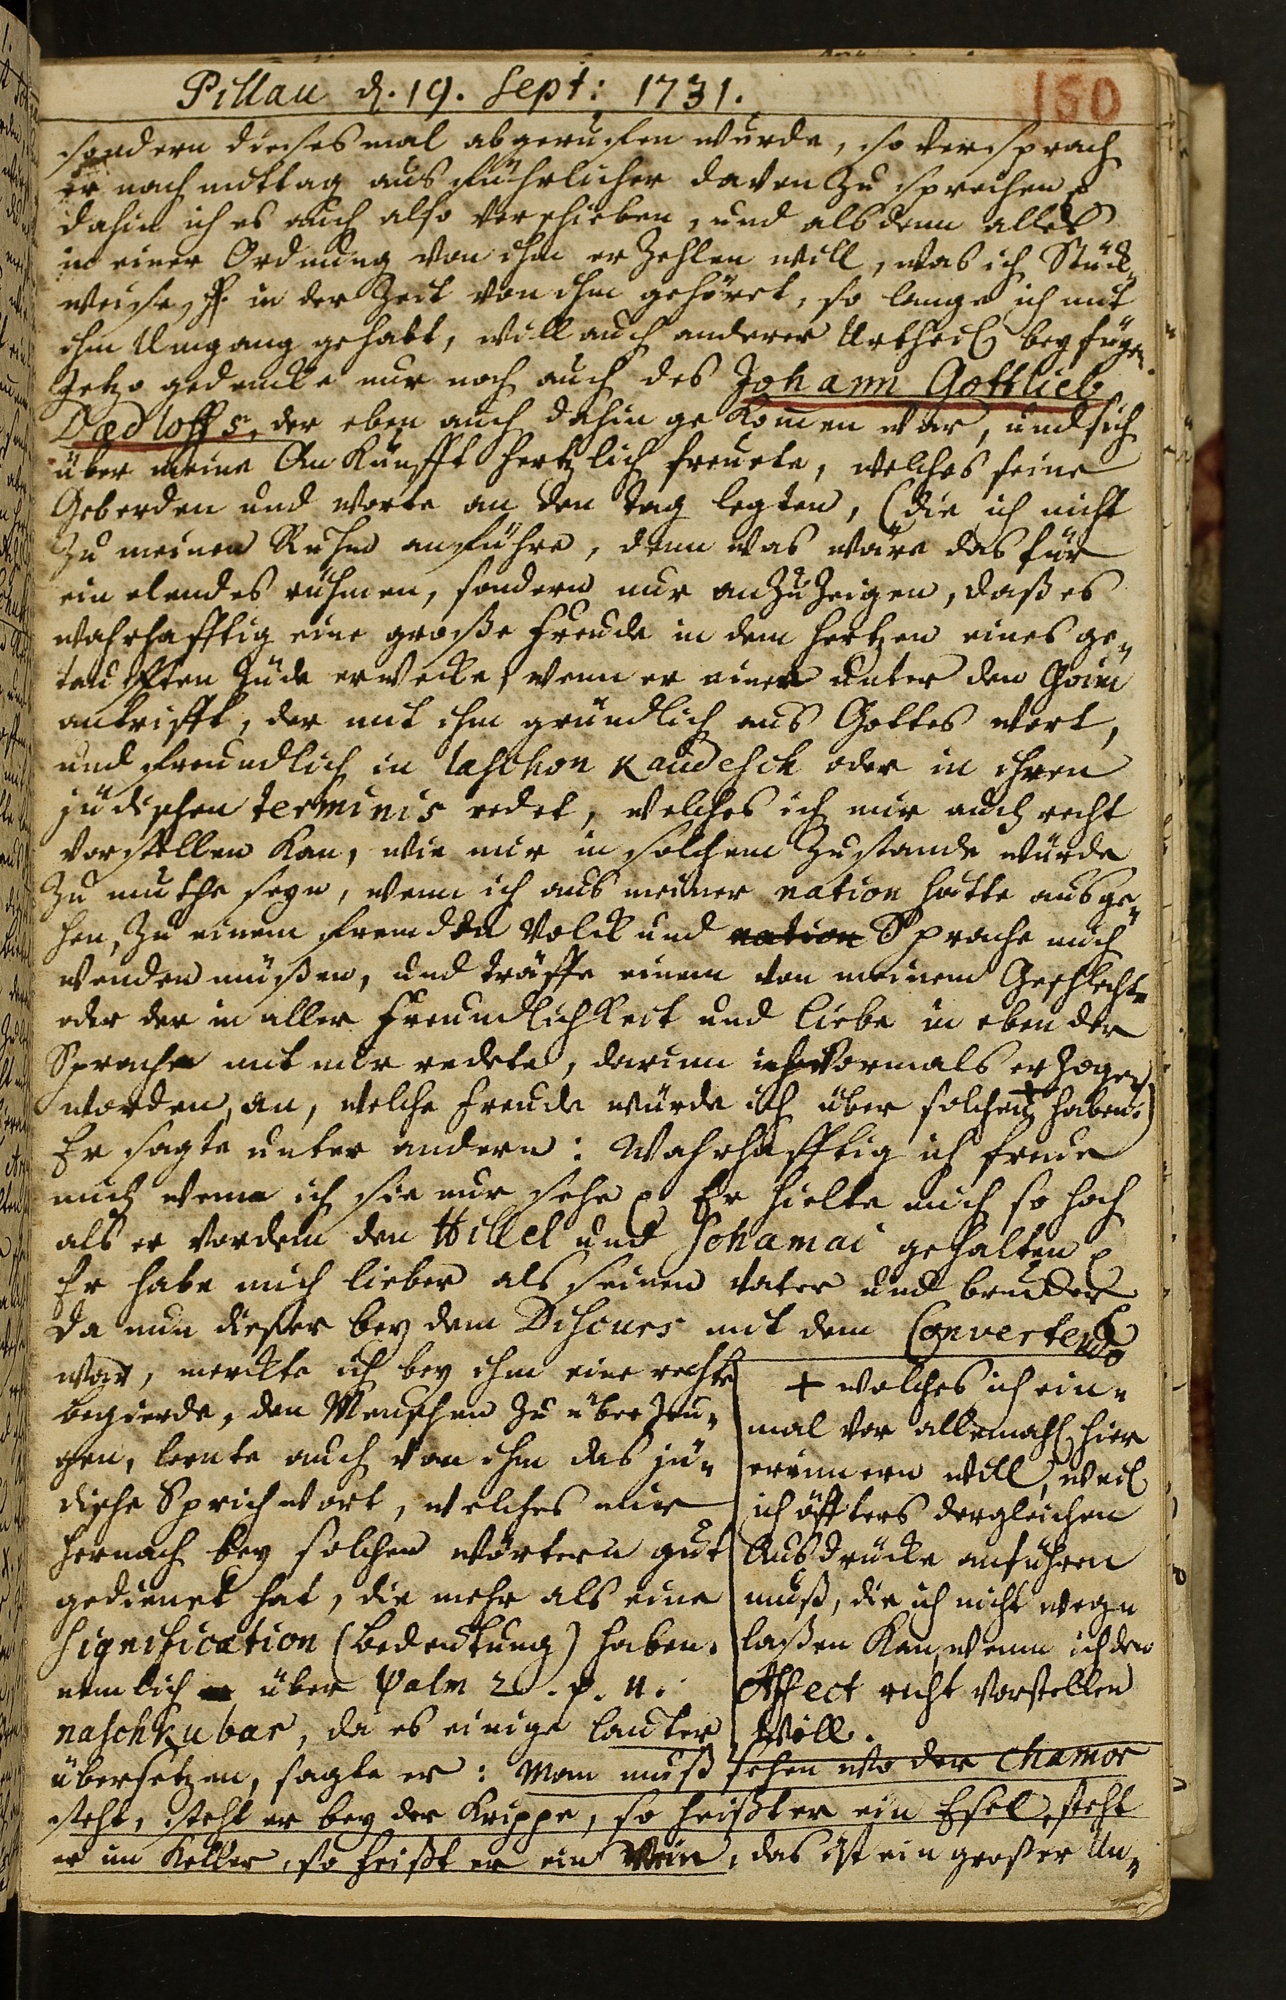 Pillau d. 19. Sept: 1731.
150
sondern dieses mal abgeruffen wurde, so versprach
er nach mittag ausführlicher davon zu sprechen,
dahin ich es auch also verschieben, und alsdenn alles
in einer Ordnung von ihm erzehlen will, was ich Stück-
weise in der Zeit von ihm gehöret, so lange ich mit
ihm Umgang gehabt, will auch anderer Urtheil beyfügen.
Jetzo gedencke nur noch auch des Johann Gottlieb
Dedloffs, der eben auch dahin gekommen war, und sich
über meine Ankunfft hertzlich freuete, welches seine
Geberden und Worte an den Tag legten, (die ich nicht
zu meinen Ruhm anführe, denn was wäre das für
ein elendes rühmen, sondern nur anzuzeigen, daß es
wahrhafftig eine große Freude in dem Hertzen eines ge-
taufften Jüden erwecke, wenn er einen unter den Goim
antrifft, der mit ihm gründlich aus Gottes Wort,
und freundlich in laschon kaudesch oder in ihren
jüdischen terminis redet, welches ich mir auch recht
vorstellen kan, wie mir in solchem Zustande würde
zu muthe seyn, wenn ich aus meiner nation hätte ausge-
hen, zu einem frembden Volck und nation Sprache mich
wenden müßen, und träffe einen von meinem Geschlechte
oder der in aller Freundlichkeit und Liebe in eben der
Sprache mit mir redete, darinn ich vormals erzogen
worden, an, welche Freude würde ich über solchen + haben.)
Er sagte unter andern: Wahrhafftig ich freue
mich wenn ich sie nur sehe p. Er hielte mich so hoch
als er vordem den Hillel und Schamai gehalten p
Er habe mich lieber als seinen Vater und Bruder p
Da nun dieser bey dem Discurs mit dem Convertendo
war, merckte ich bey ihm eine rechte
begierde, den Menschen zu überzeu-
gen, lernte auch von ihm das jü-
dische Sprichwort, welches mir
hernach bey solchen wörtern gut
gedienet hat, die mehr als eine
signification (bedeutung) haben.
nemlich über Psalm 2. p. 11.
naschku bar, da es einige lauter
+ welches ich ein-
mal vor allemahl hier
erinnern will, weil
ich öffters dergleichen
Ausdrücke anführen
muß, die ich nicht weg
laßen kan, wenn ich den
Affect recht vorstellen
will.
übersetzen, sagte er: Man muß sehen wo der chamor
steht, steht er bey der Krippe, so heißt er ein Esel, steht
er im Keller, so heißt er ein Wein, das ist ein großer Un-